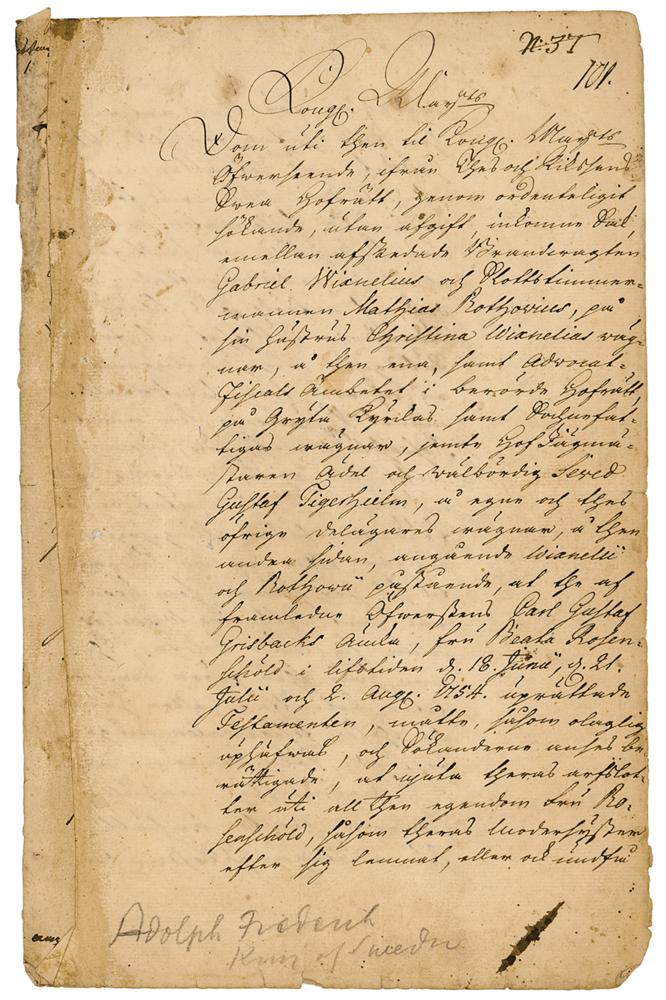 N:37
101.
Kongl. Mayts
Dom uti then til Kongl. Mayts
Öfwerseende, ifrån Thes och Riksens
Swea Hofrätt, genom ordenteligit
sökande, utan afgift, inkomne Sak,
emellan afskedade
Gabriel Wixnelius och Slottstimmer-
mannen Mathias Rothovius, på
sin hustrus Christina Wixnelias wäg-
nar, å then ena, samt Advocat-
Fiscals Ämbetet i berörde Hofrätt,
på Gryta Kyrckas samt Sochnefat-
tigas wägnar, jemte HofJägmä-
staren Ädel och wälbördig Seved
Gustaf Tigerhielm, å egne och thes
öfrige delägares wägnar, å then
andra sidan, angående Wixnelii
och Rothovii påstående, at the af
framledne Öfwerstens Carl Gustaf
Grisbachs Änka, Fru Beata Rosen-
schöld i lifstiden d. 18. Junii, d. 21.
Julii och 2. Aug. 1754. uprättade
Testamenten, måtte, såsom olaglig
uphäfwas, och Sökanderne anses be
rättigade, at njuta theras arfslot-
ter uti all then egendom Fru Ro-
senschöld, såsom theras Modersyster
efter sig lemnat, eller ock undfå
Adolph Frederik
King of Sweden